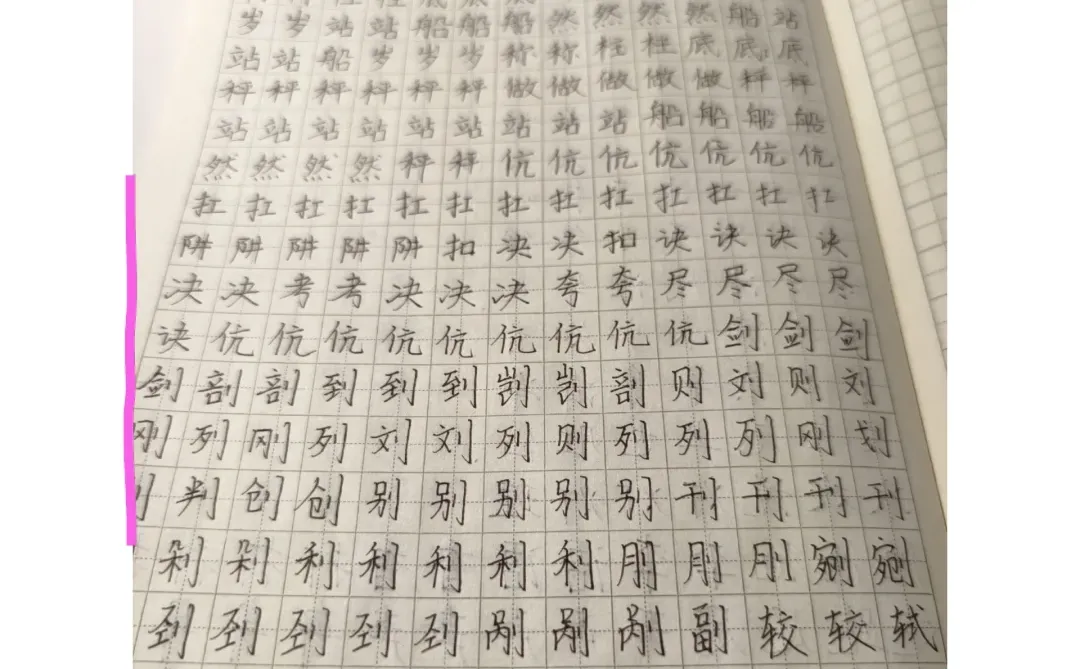 岁岁站站船船船然然然然船站
站站船岁岁岁称称柱柱底底底
秤秤秤秤秤秤做做做做做秤秤
站站站站站站站站站船船船船
然然然然秤秤伉伉伉伉伉伉伉
扛扛扛扛扛扛扛扛扛扛扛扛扛
阱阱阱阱阱扣决决扣诀诀诀诀
决决考考决决决夸夸尽尽尽尽
诀伉伉伉伉伉伉伉伉伉剑剑剑
剑剖剖到到到剀剀剖则刘则刘
刚列刚列刘刘列则列列列刚划
判创创别别别别别刊刊刊刊
剁剁利利利利利刖刖刖剜剜
到到到到到剐剐剐副较较轼